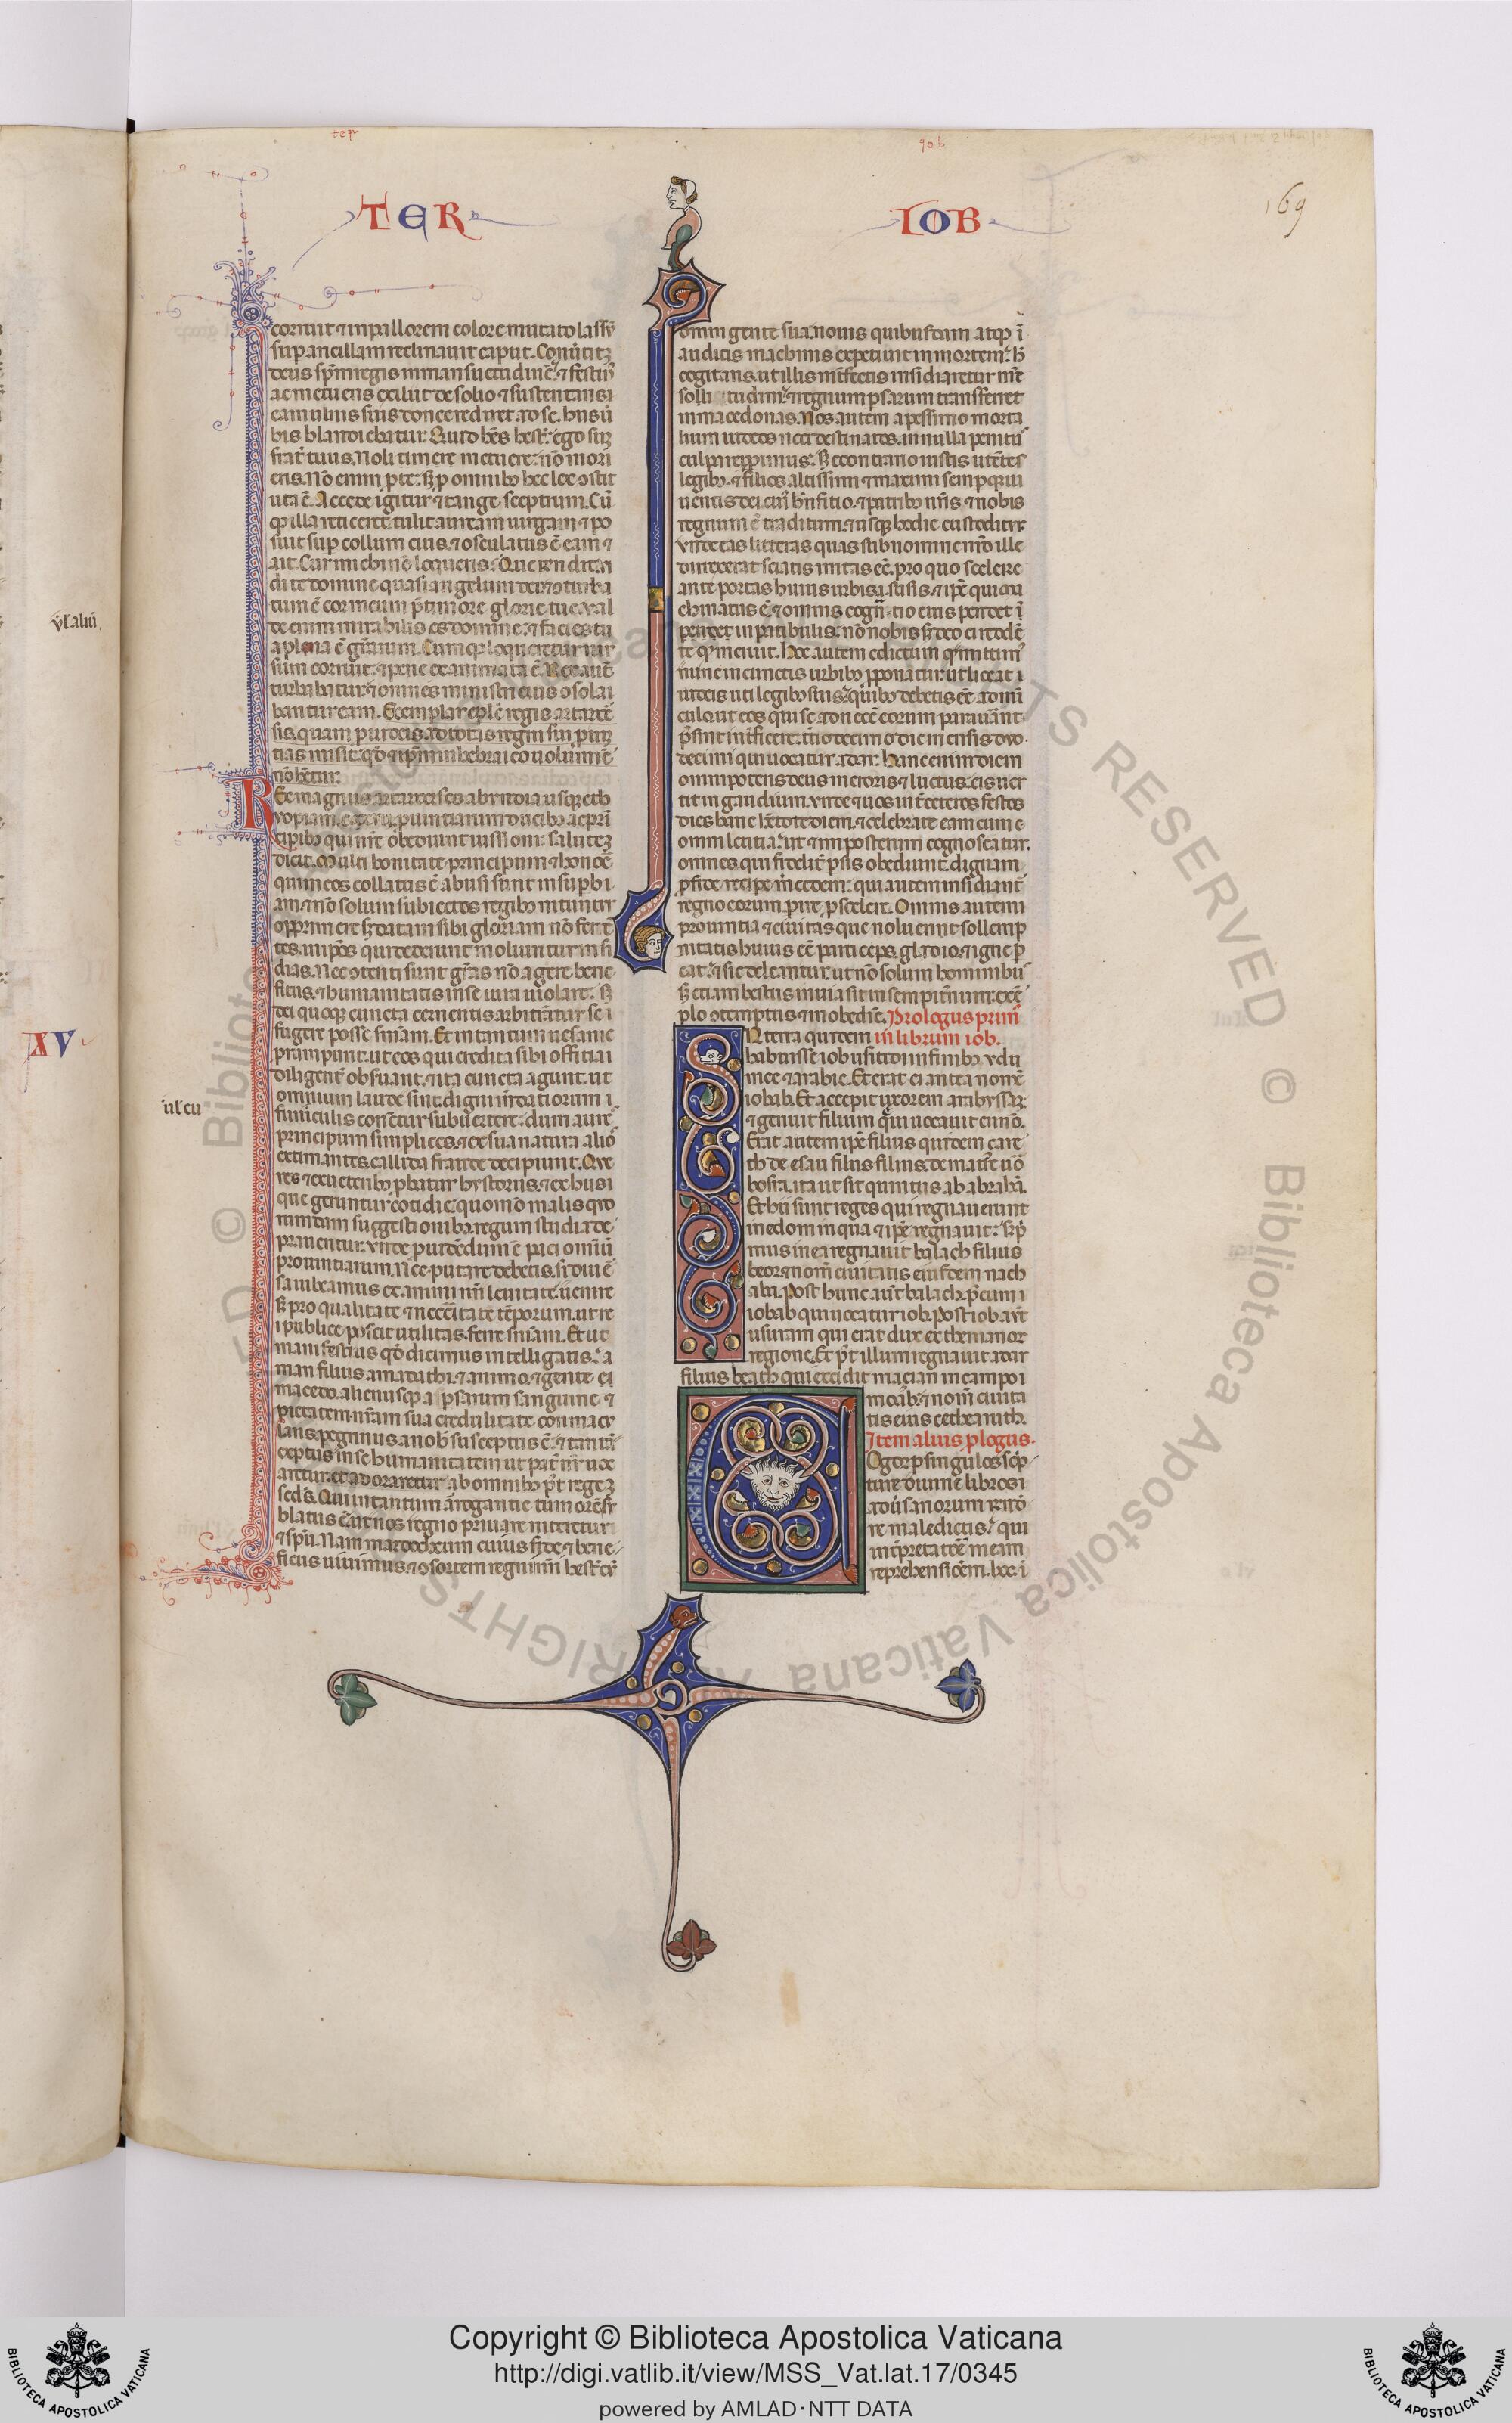 ter
Job
TER
IOB
169
corruit ⁊ in pallorem colore mutato lassũ
sup ancillam reclinauit caput. Conũtitꝫ
deus sp̃m regis in mansuetudinẽ. ⁊ festin᷒
ac metuens exiliut de solio ⁊ sustentans
eam ulnis suis donec rediret ad se. his ũ
bis blandiebatur. Quid hẽs hest̃. ego sũ
frat̃ tuus. Noli timere metuere. nõ mori
eris. Nõ enim p te. sꝫ p omnibꝫ hec lex ↄstit
uta ẽ. Accede igitur ⁊ tange sceptrum. Cũ
qꝫ illa reticeret tulit auream uirgam ⁊ po
suit sup collum eius. ⁊ osculatus ẽ eam ⁊
ait. Cur michi nõ loqueris. Que rendit. ui
di te domine quasi angelum dei. ⁊ ↄturba
tum ẽ cor meum p̃ timore glorie tue. val
de enim mirabilis es domine. ⁊ facies tu
a plena ẽ gr̃arum. Cumqꝫ loqueretur rur
sum corruit. ⁊ pene exanimata ẽ. Rex aut̃
turbabatur. ⁊ omnes ministri eius ↄsola
bantur eam. Exemplar epl̃e regis artarxe
sis. quam p iudeis. ad totas regni sui puin
tias misit. qđ ⁊ ip̃m in hebraico uolumine
nõ hẽtur.
Rex magnus artarxerses ab yndia usqꝫ eth
yopiam. c. xx. uii. puintiarum ducibꝫ ac prĩ
cipibꝫ qui nr̃e obediunt iussioni. salutem
dicit. Multi bonitate principum ⁊ honore
qui in eos collatus ẽ abusi sunt in supbi
am. ⁊ nõ solum subiectos regibꝫ nituntur
opprimere sꝫ datam sibi gloriam nõ feren
tes. in ip̃os qui dederunt moliuntur insi
dias. Nec ↄtenti sunt gr̃as nõ agere bene
ficiis. ⁊ humanitatis in se iura uiolare. sꝫ
dei quoqꝫ cuncta cernentis arbitrãtur se ĩ
fugere posse sñiam. Et in tantum uesanie
prumpunt. ut eos qui credita sibi officia
diligent̃ obseruant. ⁊ ita cuncta agunt. ut
omnium laude sint digni mendatiorum
funiculis conentur subuertere. dum aures
principum simplices. ⁊ ex sua natura alios
extimantes callida fraude decipiunt. Que
res ⁊ ex ueteribꝫ pbatur hystoriis. ⁊ ex his
que geruntur cotidie. quomõ malis quo
rundam suggestionibꝫ regum studia de
prauentur. Vnde puidẽdum ẽ paci omniũ
prouintiarum. Nec putare debetis. si diuẽ
sa iubeamus ex animi nr̃i leuitate uenire
sꝫ pro qualitate ⁊ necẽsitate tẽporum. ut re
ipublice poscit utilitas. ferre sñiam. Et ut
manifestius qđ dicimus intelligatis. a
man filius amadathi. ⁊ animo. ⁊ gente
macedo. alienusqꝫ a psarum sanguine ⁊
pietatem nr̃am sua crudelitate commacu
lans. pegrinus a nob̃ susceptus ẽ. ⁊ tantã
expertus in se humanitatem ut pat̃ nr̃ uoc
aretur. et adoraretur ab omnibꝫ p̃t regem
sed̃s. Qui in tantum arrogantie tumorẽ s
blatus ẽ. ut nos regno priuare niteretur
⁊ sp̃u. Nam mardocheum cuius fide. ⁊ bene
ficiis uiuimus. ⁊ ↄsortem regni nr̃i hest̃ cũ
omni gente sua. nouis quibusdam atqꝫ ĩ
auditis machinis expetiuit in mortem. h̃
cogitans. ut illis int̃fectis insidiaretur nr̃e
solli tudini. ⁊ regnum psarum transferret
in macedonas. Nos autem a pessimo morta
lium iudeos neci destinatos. in nulla penitus
culpa repperimus. sꝫ econtrario iustis utẽtes
legibꝫ. ⁊ filios altissimi ⁊ maximi sempqꝫ ui
uentis dei. cuius bñfitio. ⁊ patribꝫ nr̃is ⁊ nobis
regnum ẽ traditum. ⁊ usqꝫ hodie custoditur
Vnde eas litteras quas sub nomine nr̃o ille
direxerat sciatis irritas ẽe. pro quo scelere
ante portas huius urbis. i. susis. ⁊ ip̃e qui ma
chinatus ẽ. ⁊ omnis cognatio eius pendet ĩ
pendet in patibulis. nõ nobis sꝫ deo ei reddẽ
te qꝫ meruit. Hoc autem edictum qꝫ mittim᷒
nunc in cunctis urbibꝫ pponatur. ut liceat i
udeis uti legibꝫ suis. quibꝫ debetis ẽe. ad mi
culo. ut eos qui se. ad necẽ eorum parauãnt
p̃sint int̃ficere. tr̃iodecimo die mensis duo
decimi qui uocatur. adar. Hanc enim diem
omnipotens deus meroris. ⁊ luctus. eis uer
tit in gaudium. vnde ⁊ uos inter ceteros festos
dies hanc hẽtote diem. ⁊ celebrate eam cum
omni letitia. ut ⁊ in posterum cognoscatur.
omnes qui fidelit̃ psis obediunt. dignam
p fide recipe mercedem. qui autem insidiant̃
regno eorum. pire p scelere. Omnis autem
prouintia ⁊ ciuitas que noluerit sollemp
nitatis huius ẽe particeps. gladio. ⁊ igne p
eat. ⁊ sic deleantur. ut nõ solum hominibus
sꝫ etiam bestiis inuia sit in sempit̃num. exẽ
plo ↄtemptus. ⁊ inobediẽ. Prologus primꝰ
IN terra quidem in librum iob.
habuisse iob usitidi in finibꝫ ydu
mee ⁊ arabie. Et erat ei antea nomẽ
iobab. Et accepit uxorem arabyssaꝫ
⁊ genuit filium quẽ uocauit ennõ.
Erat autem ip̃e filius quidem zare
th de esau filiis filius. de matre uõ
bosra. ita ut sit quintus ab abrahã.
Et hii sunt reges qui regnauerunt
in edom in qua ⁊ ip̃e regnauit. Prĩ
mus in ea regnauit balach filius
beor. ⁊ nom̃ ciuitatis eiusdem nach
aba. Post hunc aut̃ balach. p̃cum i
iobab qui uocatur iob. post iob aut̃
usuram qui erat dux ex themanor
regione. Et p̃t illum regnauit adar
filius beath qui excidit macian in campo
moab. ⁊ nom̃ ciuita
tis eius cethea ruith.
Item alius plogus.
Cogor p singulos scp̃
ture diuine libros
aduersariorum rñdõ
re maledictis. qui
int̃pretatõẽ meam
reprehensiõẽm. hoc. i
ul' alm̃
XV
ul' cu
Copyright © Biblioteca Apostolica Vaticana
http://digi.vatlib.it/view/MSS_Vat.lat.17/0345
powered by AMLAD·NTT DATA
BIBLIOTECA APOSTOLICA VATICANA
BIBLIOTECA APOSTOLICA VATICANA